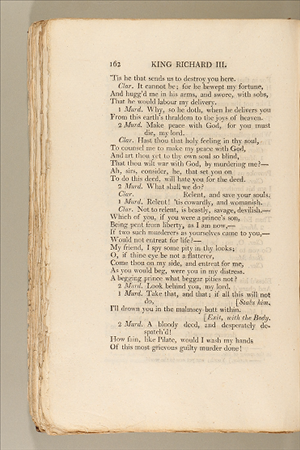 162 KING RICHARD III.
'Tis he that sends us to destroy you here.
Clar. It cannot be; for he bewept my fortune,
And hugg'd me in his arms, and swore, with sobs,
That he would labour my delivery.
1 Murd. Why, so he doth, when he delivers you
From this earth's thraldom to the joys of heaven.
2 Murd. Make peace with God, for you must
die, my lord.
Clar. Hast thou that holy feeling in thy soul,
To counsel me to make my peace with God,
And art thou yet to thy own soul so blind,
That thou wilt war with God, by murdering me?—
Ah, sirs, consider, he, that set you on
To do this deed, will hate you for the deed.
2 Murd. What shall we do?
Clar. Relent, and save your souls.
1 Murd. Relent! 'tis cowardly, and womanish.
Clar. Not to relent, is beastly, savage, devilish.—
Which of you, if you were a prince's son,
Being pent from liberty, as I am now,—
If two such murderers as yourselves came to you,—
Would not entreat for life?—
My friend, I spy some pity in thy looks;
O, if thine eye be not a flatterer,
Come thou on my side, and entreat for me,
As you would beg, were you in my distress.
A begging prince what beggar pities not?
2 Murd. Look behind you, my lord.
1 Murd. Take that, and that; if all this will not
do, [Stabs him.
I'll drown you in the malmsey-butt within.
[Exit, with the Body.
2 Murd. A bloody deed, and desperately de-
spatch'd!
How fain, like Pilate, would I wash my hands
Of this most grievous guilty murder done!